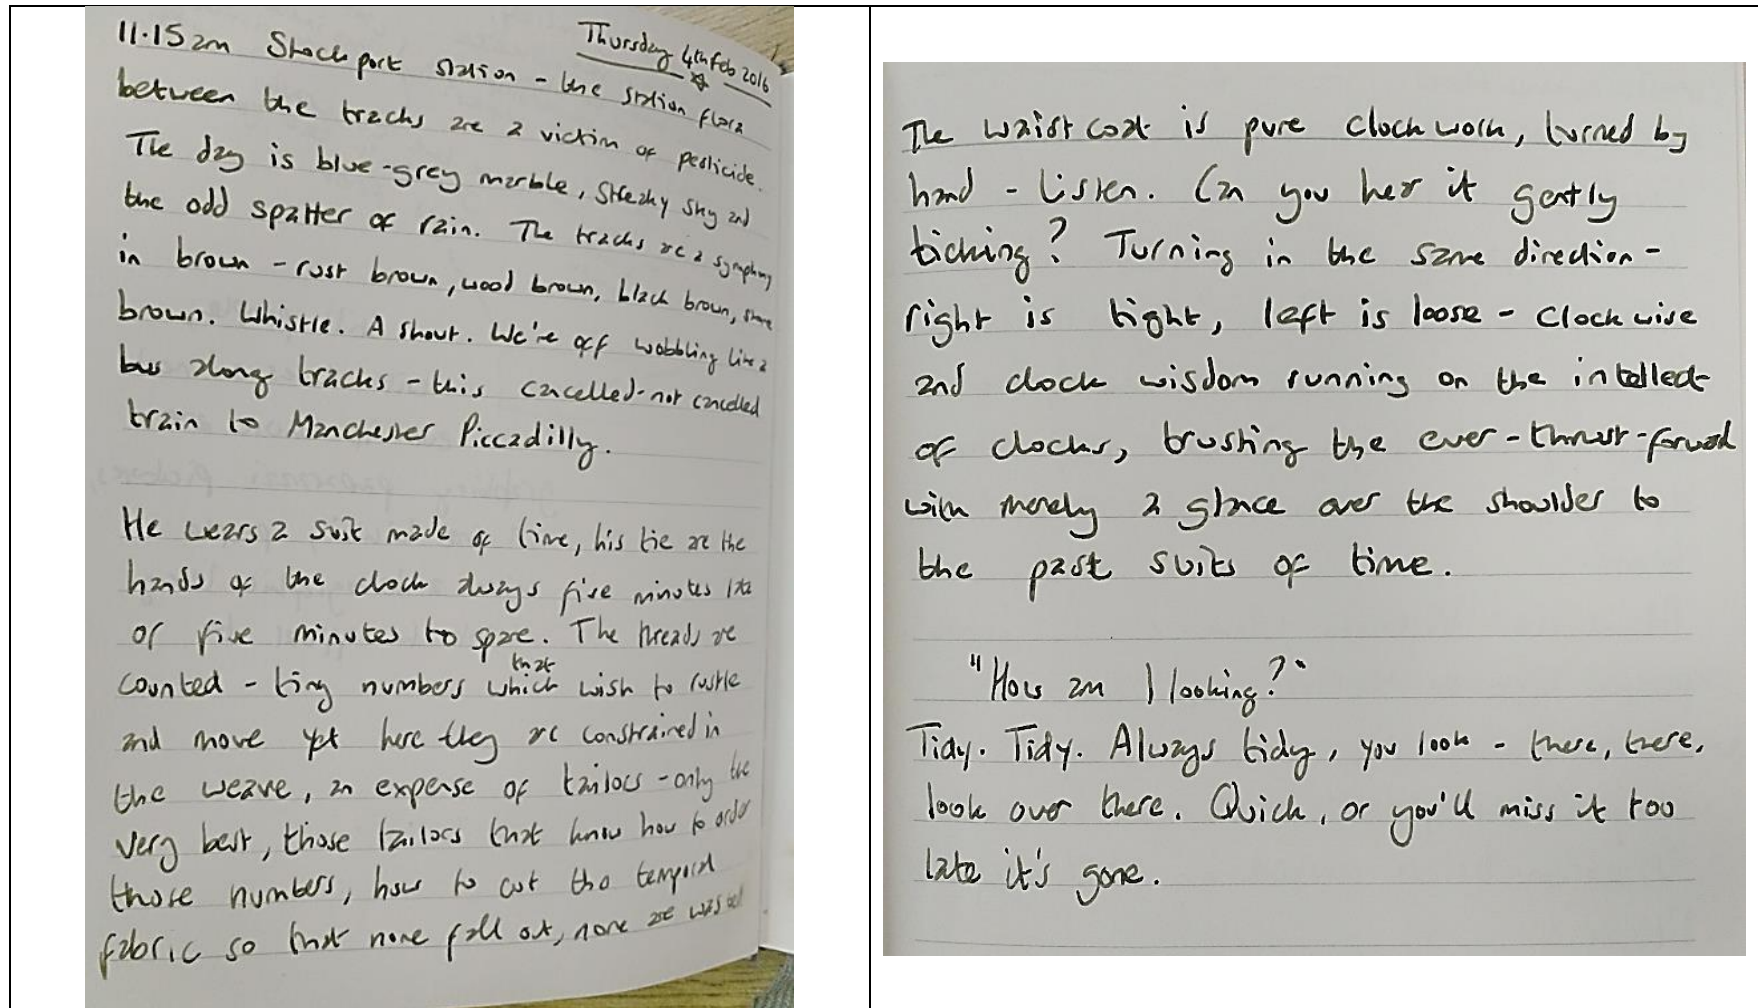 Thursday 4th Feb 2016
11.15am Stockport station - the station flora
between the tracks are a victim of pesticide.
The day is blue-grey marble, streaky sky and
the odd spatter of rain. The tracks are a symphony
in brown - rust brown, wood brown, black brown, stone
brown. Whistle. A shout. We're off wobbling like a
bus along tracks - this cancelled-not cancelled
train to Manchester Piccadilly.
He wears a suit made of time, his tie are the
hands of the clock always five minutes late
or five minutes to spare. The threads are
that
counted - tiny numbers which wish to rustle
and move yet here they are constrained in
the weave, an expense of tailors - only the
very best, those tailors that know how to order
those numbers, how to cut the temporal
fabric so that none fall out, none are wasted
The waistcoat is pure clockwork, turned by
hand - Listen. Can you hear it gently
ticking? Turning in the same direction -
right is tight, left is loose - clockwise
and clock wisdom running on the intellect
of clocks, trusting the ever-thrust-forward
with merely a glance over the shoulder to
the past suits of time.
"How am I looking?"
Tidy. Tidy. Always tidy, you look - there, there,
look over there. Quick, or you'll miss it too
late it's gone.